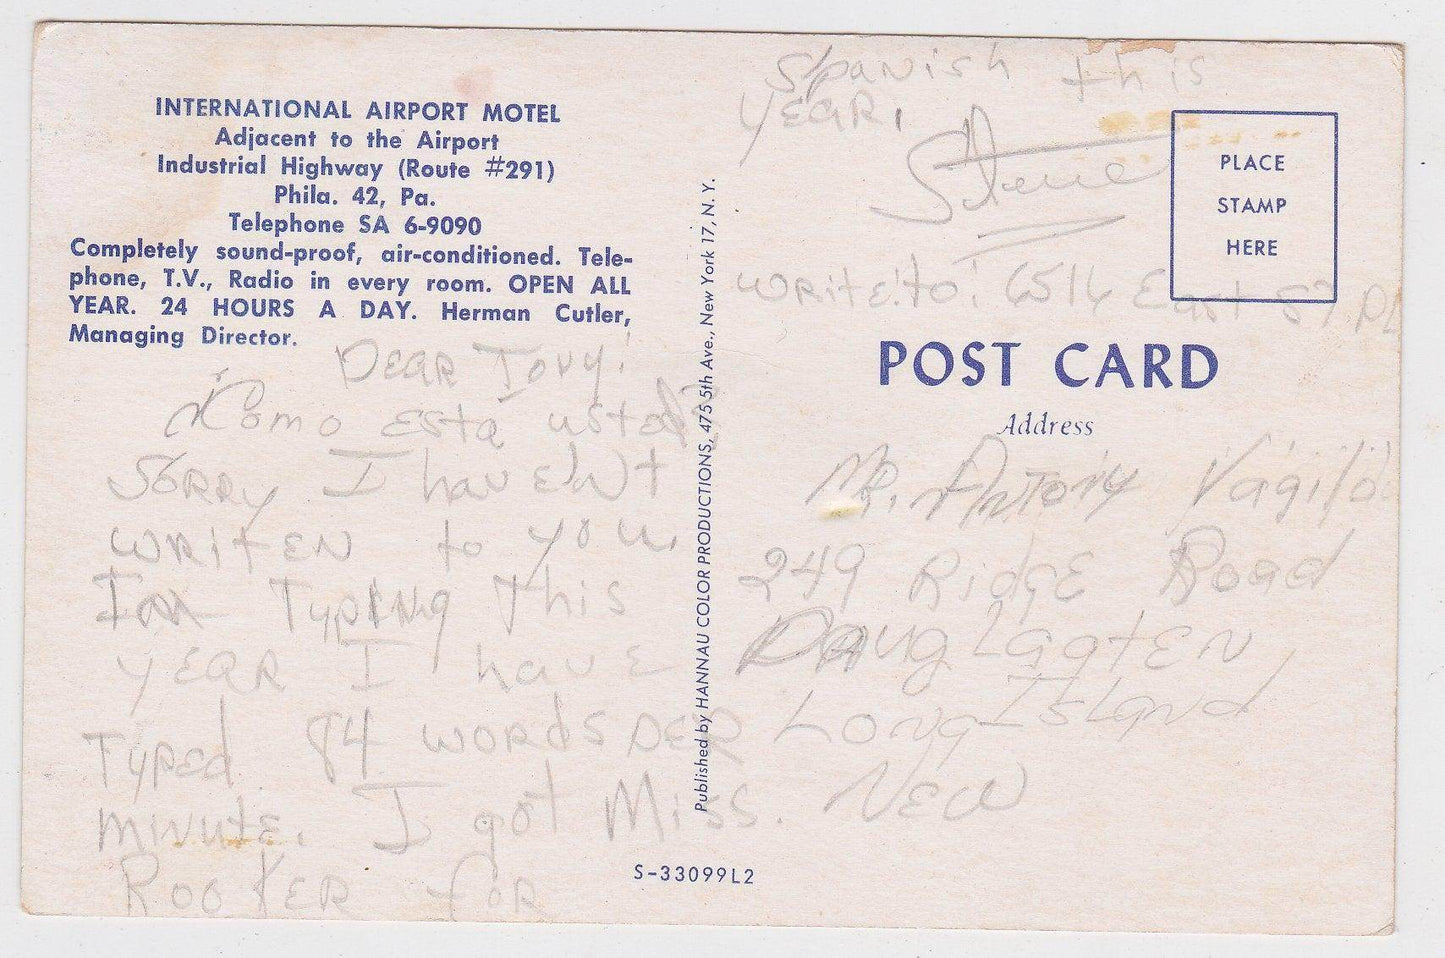 INTERNATIONAL AIRPORT MOTEL
Adjacent to the Airport
Industrial Highway (Route #291)
Phila. 42, Pa.
Telephone SA 6-9090
Completely sound-proof, air-conditioned. Tele-
phone, T.V., Radio in every room. OPEN ALL
YEAR. 24 HOURS A DAY. Herman Cutler,
Managing Director.
Dear Tony:
Como esta usted?
Sorry I haven't
written to you.
Im Typing this
year I have
Typed 84 words per
minute. I got Miss.
Rooker for
Spanish this
year.
Steve
write to: 6516 East 57 PL
Published by HANNAU COLOR PRODUCTIONS, 475 5th Ave., New York 17, N. Y.
PLACE
STAMP
HERE
POST CARD
Address
Mr. Antony
249 Ridge Road
Long Island
New
S-33099L2